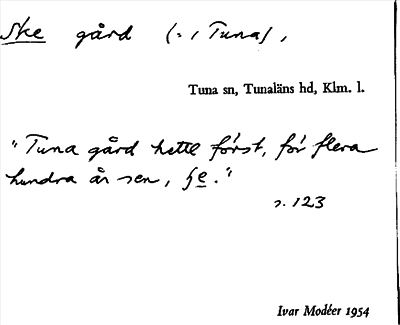 Ske gård (= i Tuna),
Tuna sn, Tunaläns hd, Klm. l.
"Tuna gård hette först, för flera
hundra år sen, Se."
s. 123
Ivar Modéer 1954